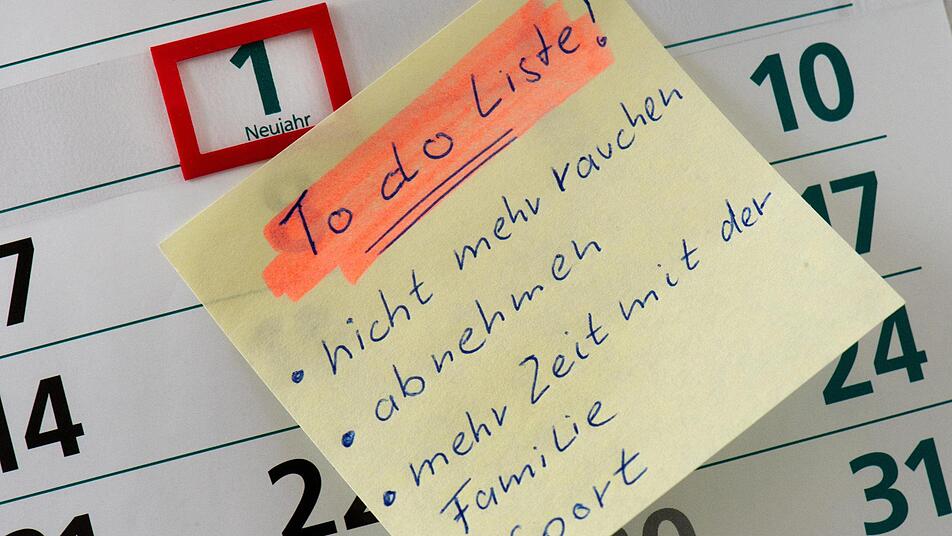 1
Neujahr
To do Liste!
• nicht mehr rauchen
• abnehmen
• mehr Zeit mit der
Familie
Sport
10
17
24
31
7
14
21
22
30